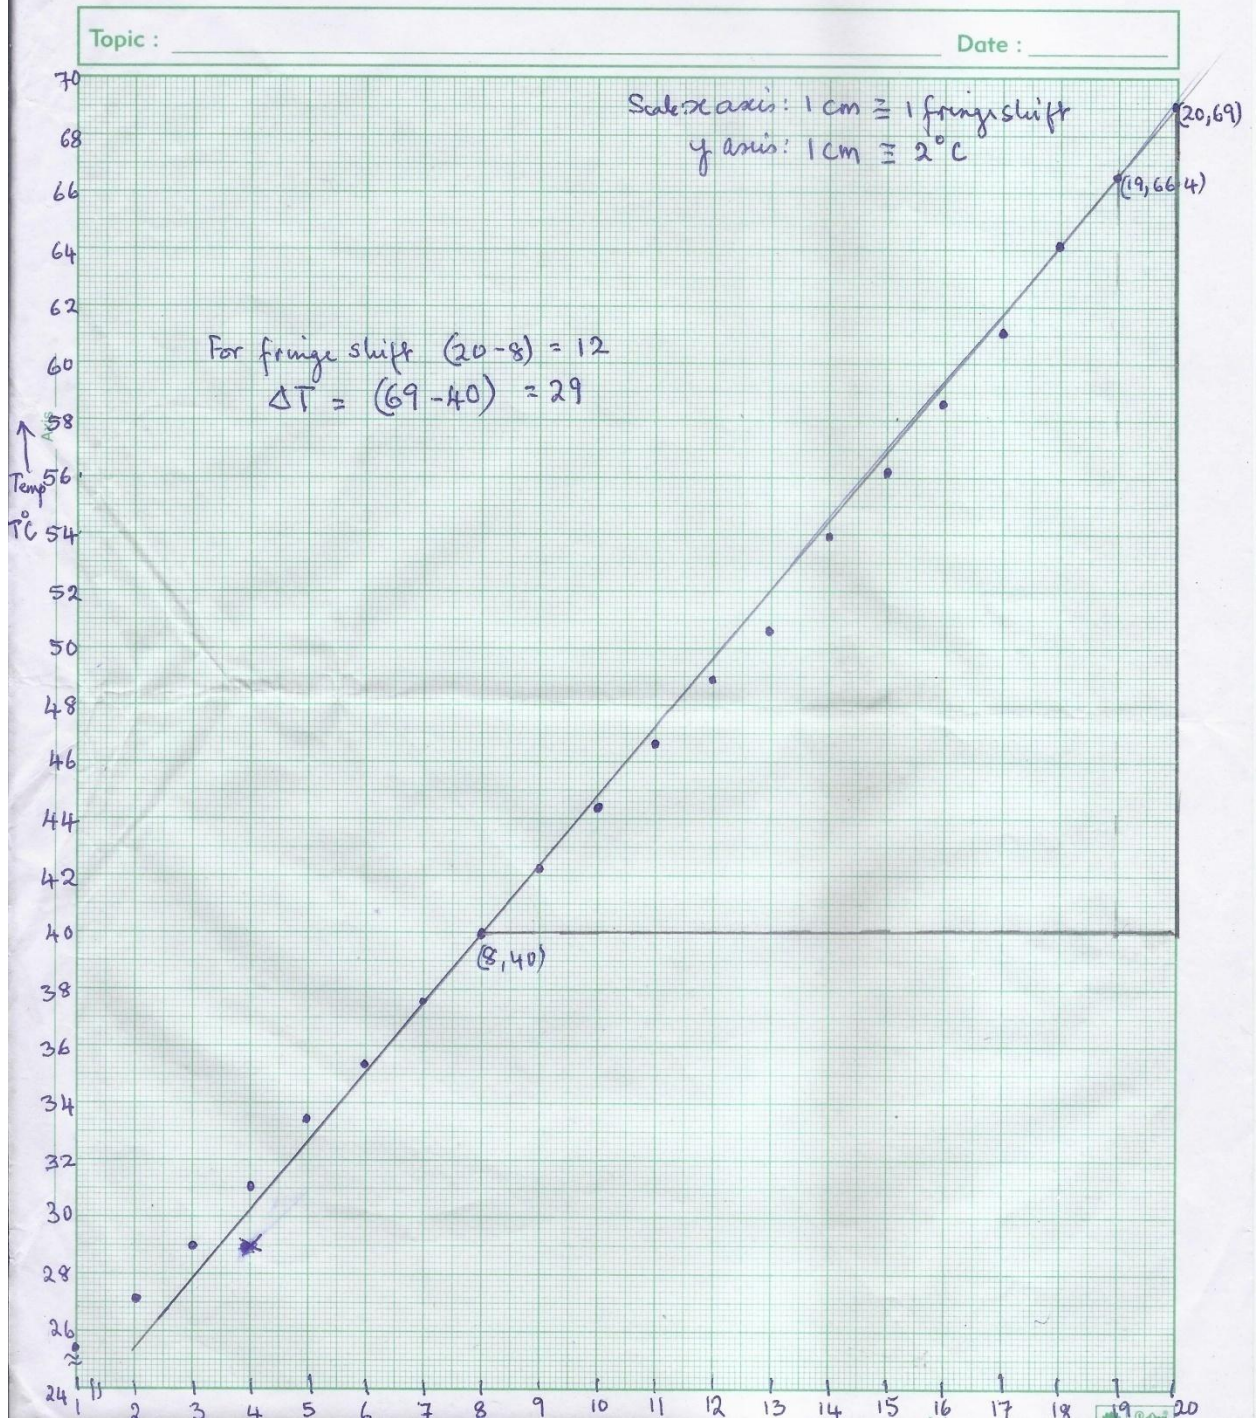 Topic :
Date :
Scale x axis: 1 cm ≡ 1 fringe shift
y axis: 1 cm ≡ 2°C
(20,69)
(19,66.4)
For fringe shift (20-8) = 12
ΔT = (69-40) = 29
(8,40)
Axis
↑
Temp
T°C
70
68
66
64
62
60
58
56
54
52
50
48
46
44
42
40
38
36
34
32
30
28
26
24
1 2 3 4 5 6 7 8 9 10 11 12 13 14 15 16 17 18 19 20